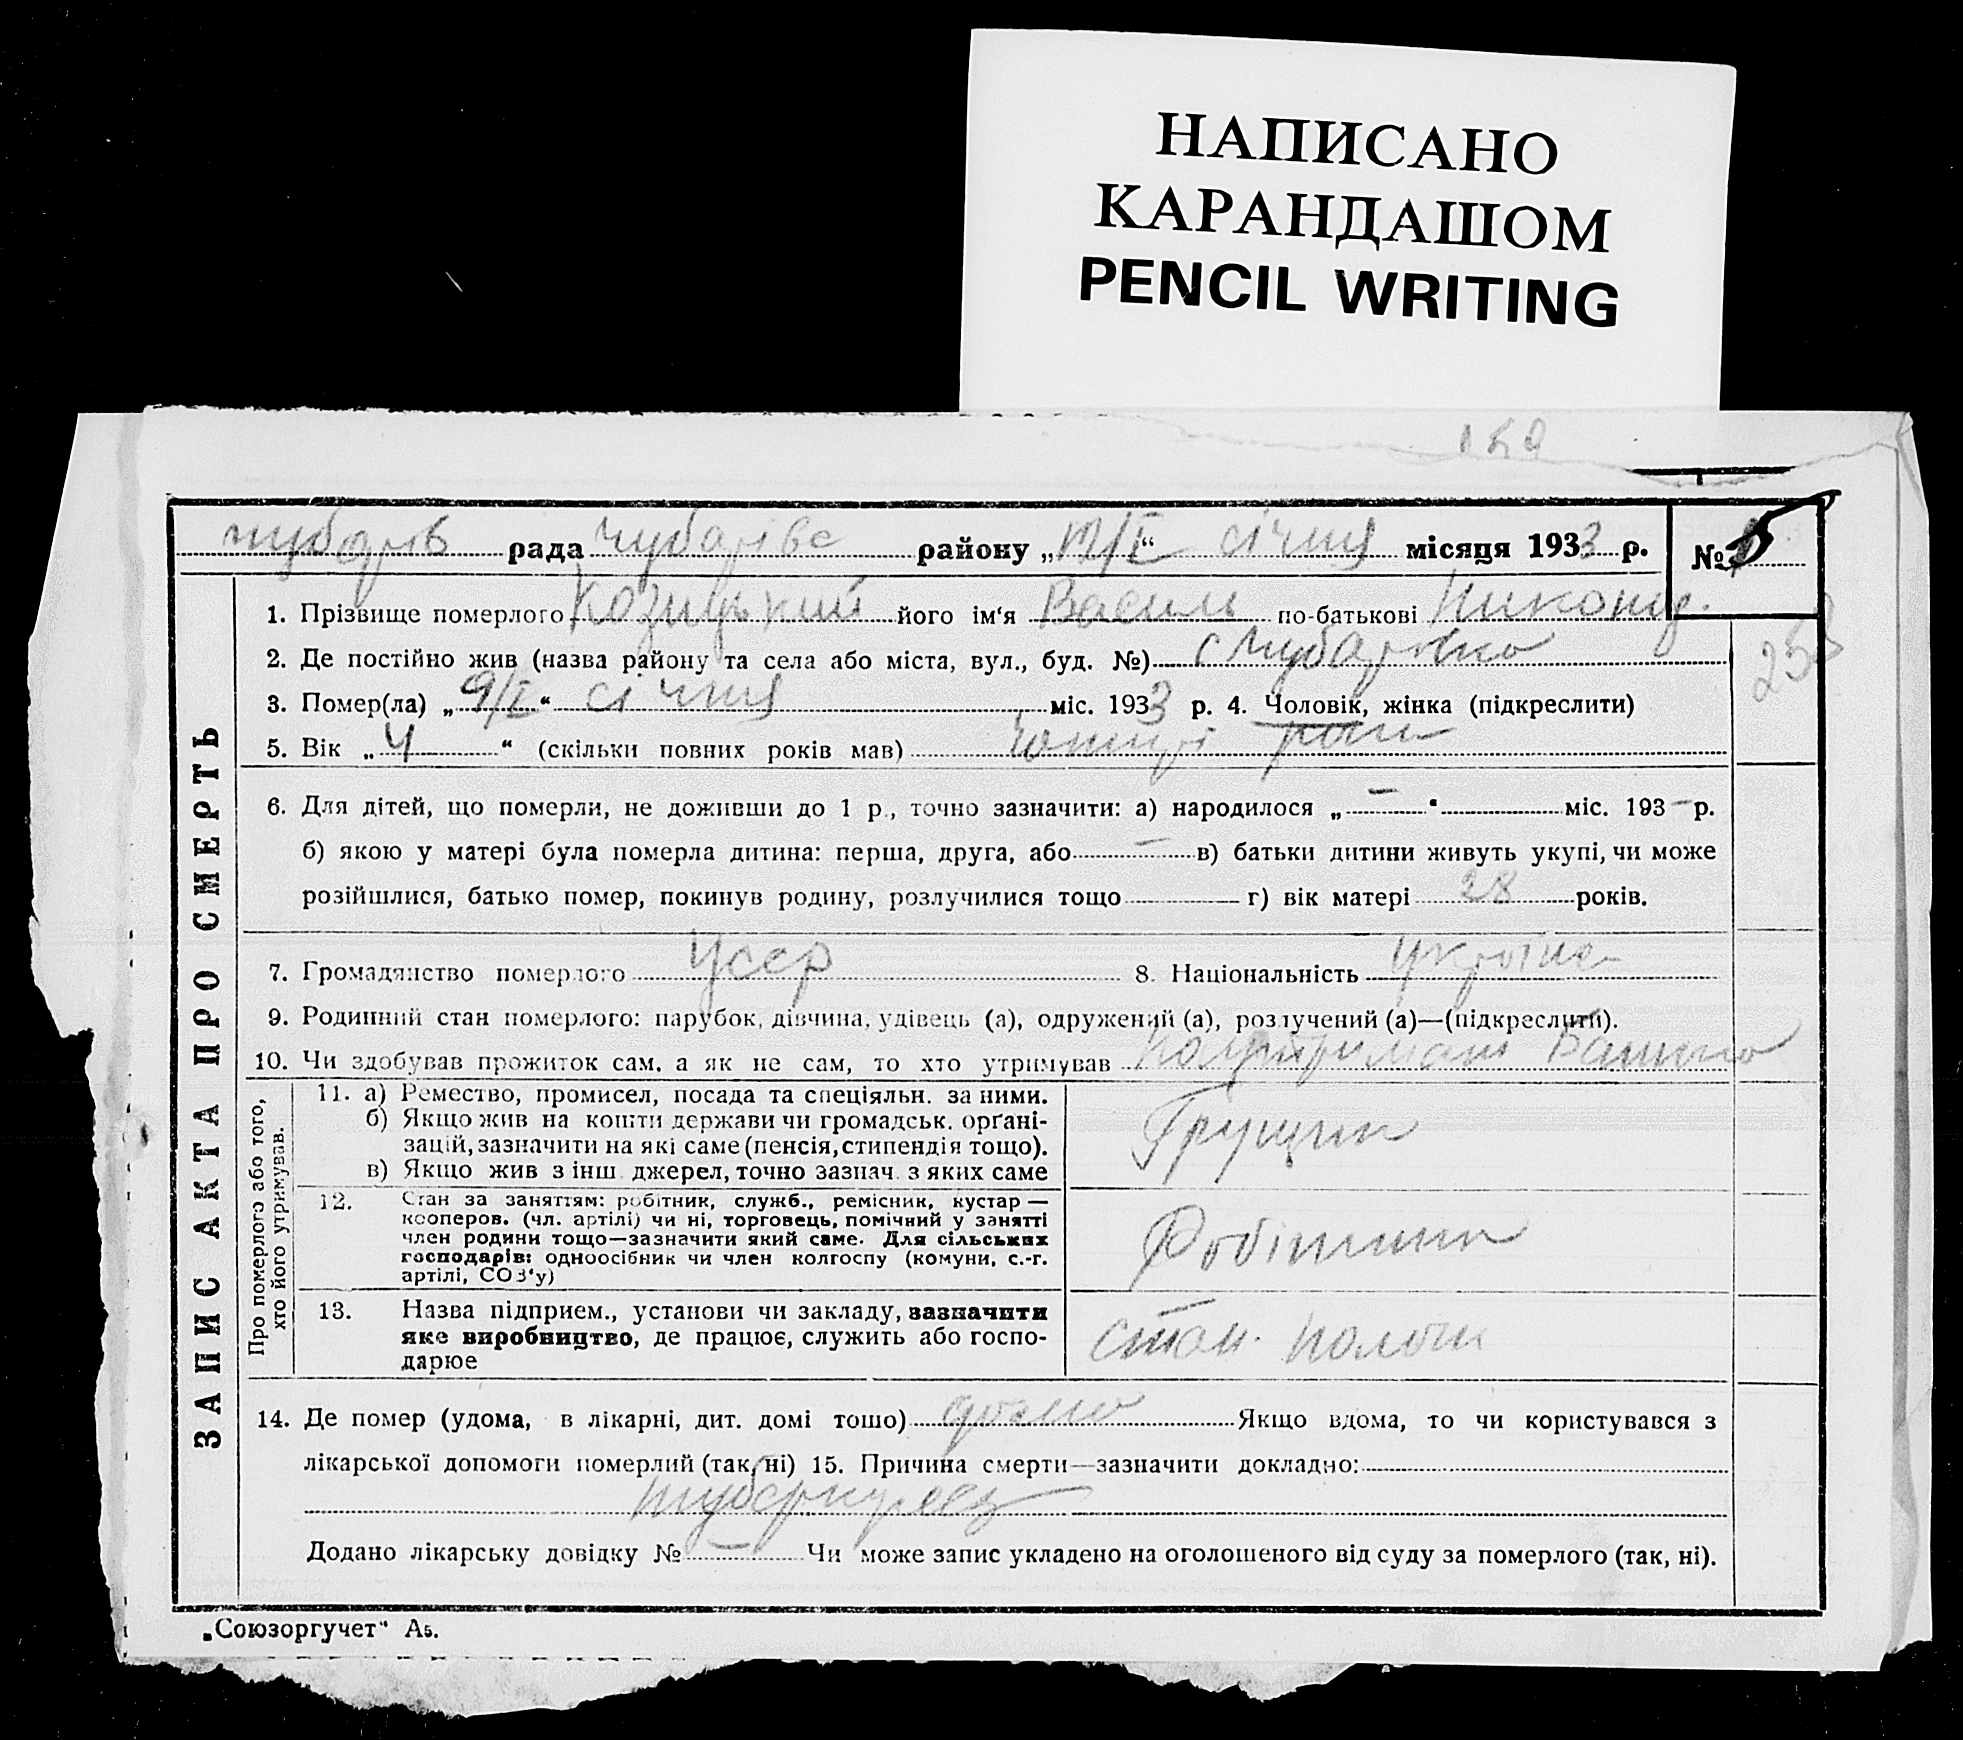 НАПИСАНО
КАРАНДАШОМ
PENCIL WRITING
чубарів рада чубарівс району „ /I “ січня місяця 1933 р. № 5
ЗАПИС АКТА ПРО СМЕРТЬ
1. Прізвище померлого Козицький його ім‘я Василь по-батькові
2. Де постійно жив (назва району та села або міста, вул., буд. №) с Чубарівка
253
3. Помер(ла) „ 9/I “ січня міс. 1933 р. 4. Чоловік, жінка (підкреслити)
5. Вік „ 4 “ (скільки повних років мав) роки
6. Для дітей, що померли, не доживши до 1 р., точно зазначити: а) народилося „ — “ міс. 193 — р.
б) якою у матері була померла дитина: перша, друга, або — в) батьки дитини живуть укупі, чи може
розійшлися, батько помер, покинув родину, розлучилися тощо г) вік матері 28 років.
7. Громадянство померлого УССР 8. Національність україне
9. Родинний стан померлого: парубок, дівчина, удівець (а), одружений (а), розлучений (а)—(підкреслити).
10. Чи здобував прожиток сам, а як не сам, то хто утримував
Про померлого або того,
хто його утримував.
11. а) Ремество, промисел, посада та спеціяльн. за ними.
б) Якщо жив на кошти держави чи громадськ. орґані-
зацій, зазначити на які саме (пенсія, стипендія тощо).
в) Якщо жив з інш. джерел, точно зазнач. з яких саме
Грущик
12. Стан за заняттям: робітник, служб., ремісник, кустар —
кооперов. (чл. артілі) чи ні, торговець, помічний у занятті
член родини тощо—зазначити який саме. Для сільських
господарів: одноосібник чи член колгоспу (комуни, с.-г.
артілі, СОЗ‘у)
Робітник
13. Назва підприєм., установи чи закладу, зазначити
яке виробництво, де працює, служить або госпо-
дарює
стан. Пологи
14. Де помер (удома, в лікарні, дит. домі тошо) дома Якщо вдома, то чи користувався з
лікарської допомоги померлий (так, ні) 15. Причина смерти—зазначити докладно:
туберкульоз
Додано лікарську довідку № — Чи може запис укладено на оголошеного від суду за померлого (так, ні).
„Союзоргучет“ А5.